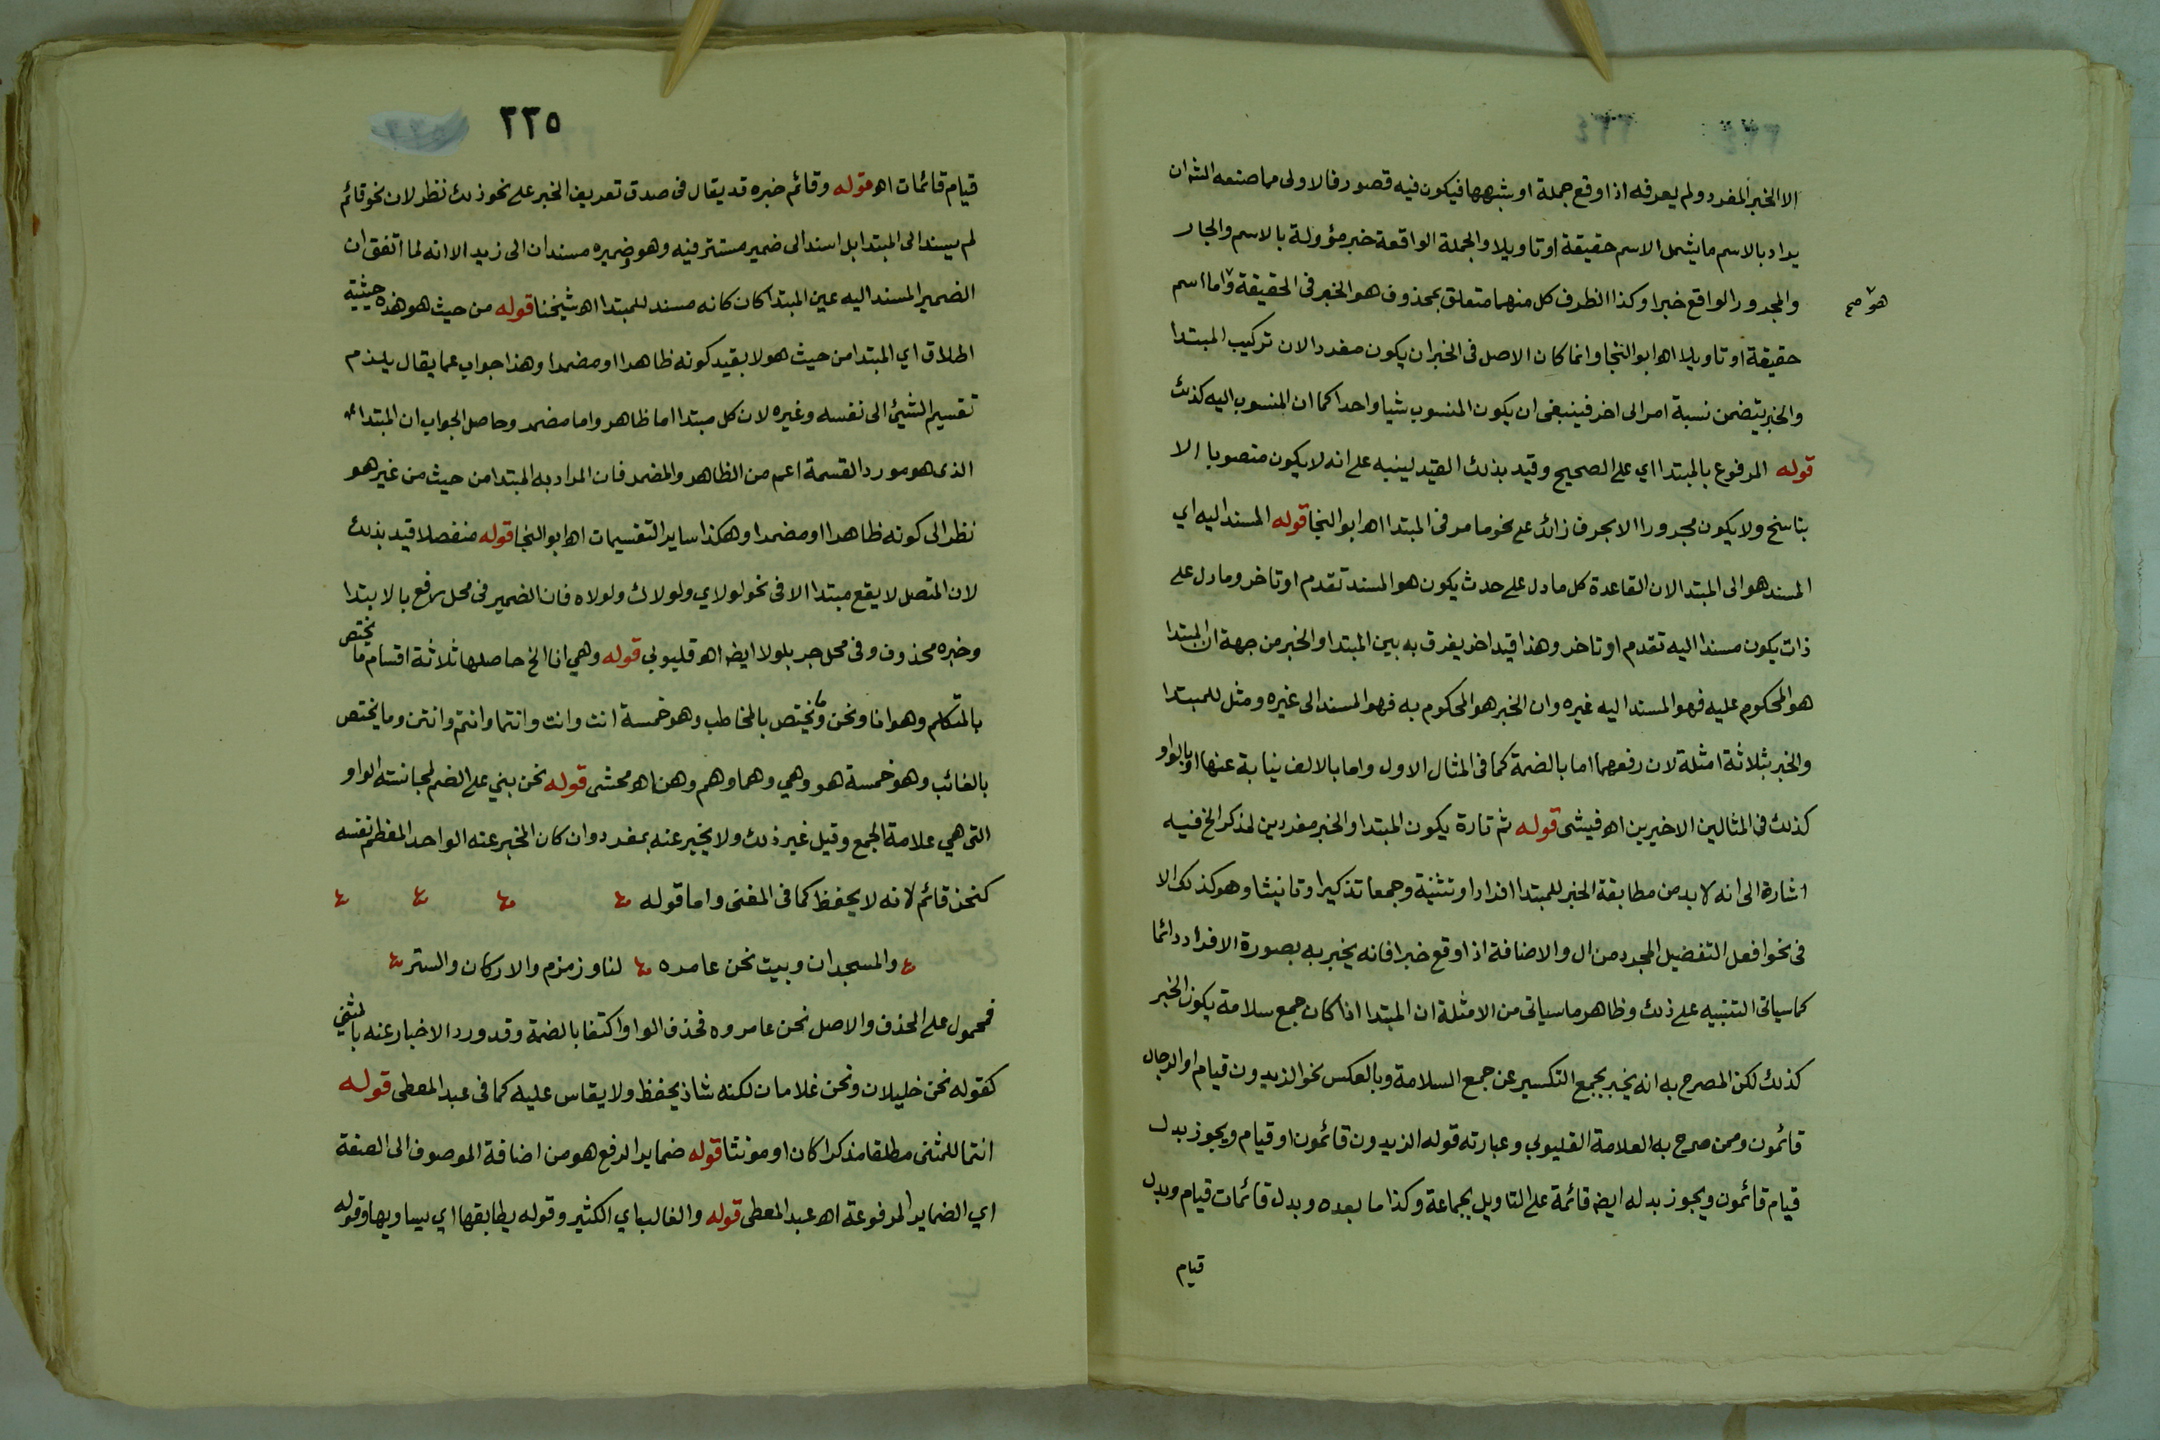 الا الخبر المفرد ولم يعرفه اذا وقع جملة او شبهها فيكون فيه قصور فالاولى مما صنعه الشه ان
يراد بالاسم ما يشمل الاسم حقيقة او تاويلا والجملة الواقعة خبر مؤولة بالاسم والجار
والمجرور الواقع خبرا وكذا الظرف كل منهما متعلق بمحذوف هو الخبر في الحقيقة واما اسم
هو صح
حقيقة او تاويلا اه ابو النجا وانما كان الاصل في الخبر ان يكون مفردا لان تركيب المبتدا
والخبر يتضمن نسبة امر الى اخر فينبغي ان يكون المنسوب شيا واحدا كما ان المنسوب اليه كذلك
قوله المرفوع بالمبتدا اي على الصحيح وقيد بذلك القيد لينبه على انه لا يكون منصوبا الا
بناسخ ولا يكون مجرورا الا بحرف زائد على نحو ما مر في المبتدا اه ابو النجا قوله المسند اليه اي
المسند هو الى المبتدا لان القاعدة كل ما دل على حدث يكون هو المسند تقدم او تاخر وما دل على
ذات يكون مسندا اليه تقدم او تاخر وهذا قيد اخر يفرق به بين المبتدا والخبر من جهة ان المبتدا
هو المحكوم عليه فهو المسند اليه غيره وان الخبر هو المحكوم به فهو المسند الى غيره ومثل للمبتدا
والخبر بثلاثة امثلة لان رفعهما اما بالضمة كما في المثال الاول واما بالالف نيابة عنها او بالواو
كذلك في المثالين الاخيرين اه فيشى قوله ثم تارة يكون المبتدا والخبر مفردين لمذكر الخ فيه
اشارة الى انه لا بد من مطابقة الخبر للمبتدا افرادا وتثنية وجمعا تذكيرا وتانيثا وهو كذلك الا
في نحو افعل التفضيل المجرد من ال والاضافة اذا وقع خبرا فانه يخبر به بصورة الافراد دائما
كما سياتى التنبيه على ذلك وظاهر ما سياتى من الامثلة ان المبتدا اذا كان جمع سلامة يكون الخبر
كذلك لكن المصرح به انه يخبر بجمع التكسير عن جمع السلامة وبالعكس نحو الزيدون قيام او الرجال
قائمون وممن صرح به العلامة القليوبي وعبارته قوله الزيدون قائمون او قيام ويجوز بدل
قيام قائمون ويجوز بدله ايضه قائمة على التاويل بجماعة وكذا ما بعده وبدل قائمات قيام وبدل
قيام
٢٢٥
قيام قائمات اه قوله وقائم خبره قد يقال في صدق تعريف الخبر على نحو ذلك نظر لان نحو قائم
لم يسند الى المبتدا بل اسند الى ضمير مستتر فيه وهو وضميره مسندان الى زيد الا انه لما اتفق ان
الضمير المسند اليه عين المبتدا كان كانه مسند للمبتدا اه شيخنا قوله من حيث هو هذه حيثية
اطلاق اي المبتدا من حيث هو لا بقيد كونه ظاهرا او مضمرا وهذا جواب عما يقال يلزم
تقسيم الشيئ الى نفسه وغيره لان كل مبتدا اما ظاهر واما مضمر وحاصل الجواب ان المبتدا
الذى هو مورد القسمة اعم من الظاهر والمضمر فان المراد به المبتدا من حيث من غير هو
نظر الى كونه ظاهرا او مضمرا وهكذا ساير التقسيمات اه ابو النجا قوله منفصلا قيد بذلك
لان المتصل لا يقع مبتدا الا في نحو لولاي ولولاك ولولاه فان الضمير في محل رفع بالابتدا
وخبره محذوف وفي محل جر بلولا ايضه اه قليوبي قوله وهي انا الخ حاصلها ثلاثة اقسام ما يختص
بالمتكلم وهو انا ونحن وما يختص بالمخاطب وهو خمسة انت وانت وانتما وانتم وانتن وما يختص
بالغائب وهو خمسة هو وهي وهما وهم وهن اه محشى قوله نحن بني على الضم لمجانسته الواو
التى هي علامة الجمع وقيل غير ذلك ولا يخبر عنه بمفرد وان كان المخبر عنه الواحد المعظم نفسه
كنحن قائم لانه لا يحفظ كما في المغنى واما قوله
والمسجدان وبيت نحن عامره لنا وزمزم والاركان والستر
فمحمول على الحذف والاصل نحن عامروه فحذف الواو اكتفا بالضمة وقد ورد الاخبار عنه بالمثني
كقوله نحن خليلان ونحن غلامان لكنه شاذ يحفظ ولا يقاس عليه كما في عبد المعطى قوله
انتما للمثنى مطلقا مذكرا كان او مونثا قوله ضماير الرفع هو من اضافة الموصوف الى الصفة
اي الضماير المرفوعة اه عبد المعطى قوله والغالب اي الكثير وقوله يطابقها اي يساويها وقوله